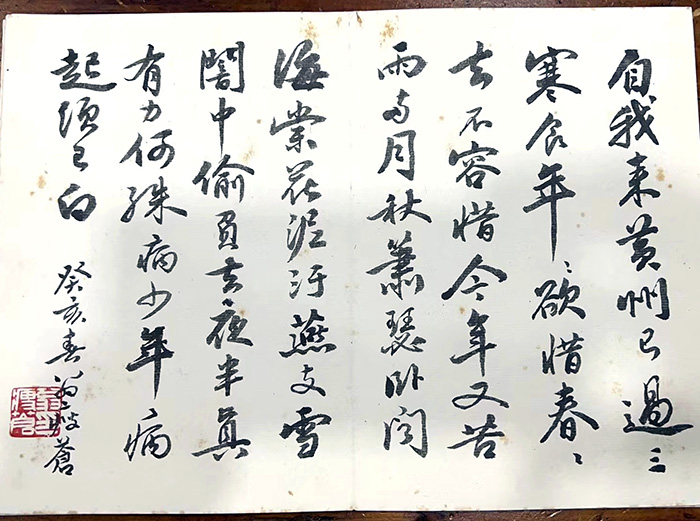 自我来黄州已過三
寒食年〻欲惜春〻
去不容惜今年又苦
雨兩月秋蕭瑟卧聞
海棠花泥汙燕支雪
闇中偷負去夜半真
有力何殊病少年病
起須已白
癸亥春蒼